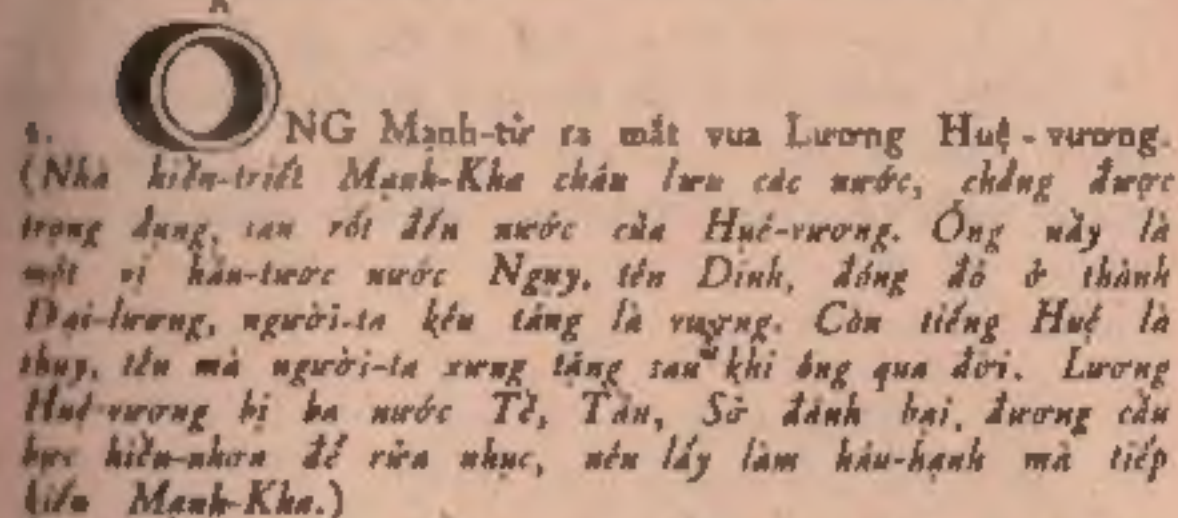 1. ÔNG Mạnh-tử ra mắt vua Lương Huệ-vương.
(Nhà hiền-triết Mạnh-Kha châu lưu các nước, chẳng được
trọng dụng, sau rốt đến nước của Huệ-vương. Ông nầy là
một vị hầu-tước nước Ngụy, tên Dinh, đóng đô ở thành
Đại-lương, người-ta kêu tâng là vương. Còn tiếng Huệ là
thụy, tên mà người-ta xưng tặng sau khi ông qua đời. Lương
Huệ-vương bị ba nước Tề, Tần, Sở đánh bại, đương cầu
bực hiền-nhơn để rửa nhục, nên lấy làm hân-hạnh mà tiếp
kiến Mạnh-Kha.)